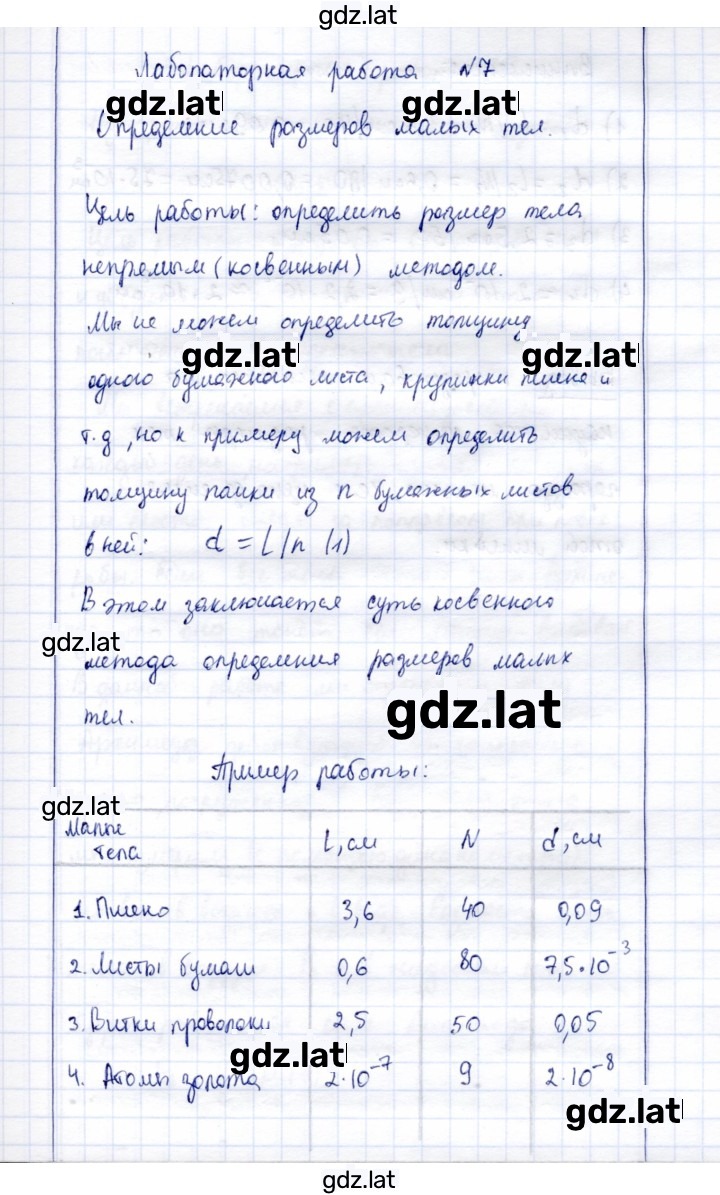 gdz.lat
Лабопаторная работа №7
gdz.lat gdz.lat
Определение размеров малых тел.
Цель работы: определить размер тела
непрямым (косвенным) методом.
Мы не можем определить толщину
gdz.lat gdz.lat
одного бумажного листа, крупинки пшена и
т.д, но к примеру можем определить
толщину пачки из n бумажных листов
в ней: d = L/n (1)
В этом заключается суть косвенного
gdz.lat
метода определения размеров малых
gdz.lat
тел.
Пример работы:
gdz.lat
Малые тела L, см N d, см
1. Пшено 3,6 40 0,09
2. Листы бумаги 0,6 80 7,5·10⁻³
3. Витки проволоки 2,5 50 0,05
gdz.lat
4. Атомы золота 2·10⁻⁷ 9 2·10⁻⁸
gdz.lat
gdz.lat